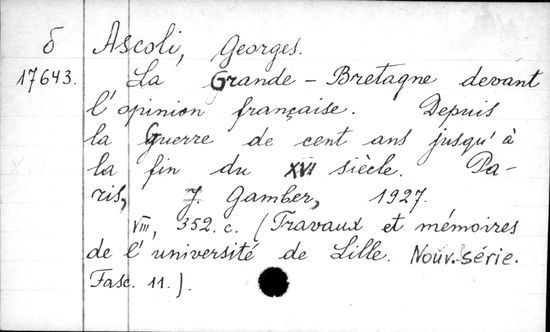 б Ascoli, Georges.
17643. La Grande-Bretagne devant
l'opinion française. Depuis
la Guerre de cent ans jusqu'à
la fin du XVI siècle. Pa-
ris, J. Gamber, 1927.
VIII, 352. c. (Travaux et mémoires
de l'université de Lille. Nouv. série.
Fasc. 11.).